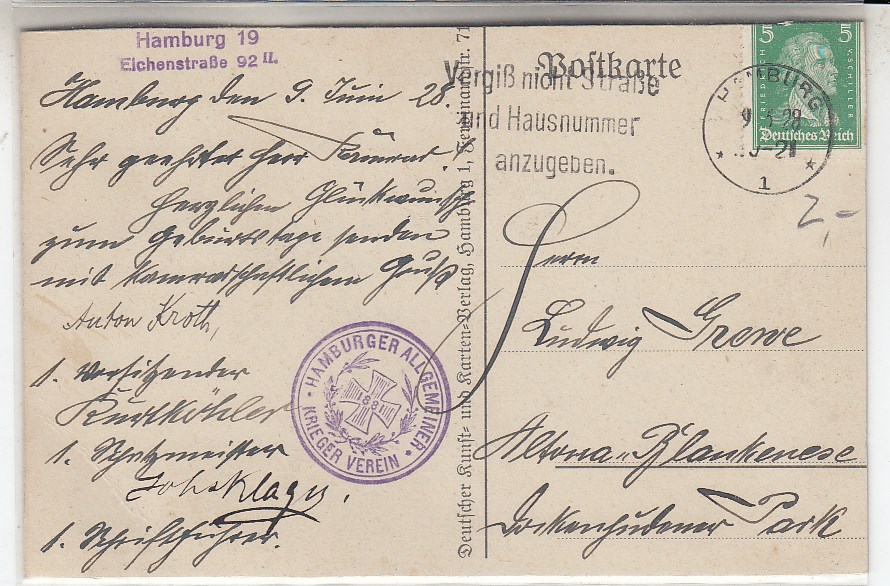 Hamburg 19
Eichenstraße 92 II.
Hamburg den 9. Juni 28.
Sehr geehrter Herr Kamrad!
Herzlichen Glückwunsch
zum Geburtstage senden
mit kamradschaftlichem Gruß
Anton Kroth,
1. Vorsitzender
Kurt Köhler
1. Schatzmeister
1. Schriftführer.
HAMBURGER ALLGEMEINER
KRIEGER VEREIN
88
Deutscher Kunst- und Karten-Verlag, Hamburg 1, Seminarstr. 71
Postkarte
Vergiß nicht Straße
und Hausnummer
anzugeben.
HAMBURG
1
5 5
FRIEDRICH V. SCHILLER
Deutsches Reich
2,-
Herrn
Ludwig Grewe
Altona-Blankenese
Dockenhudener Park